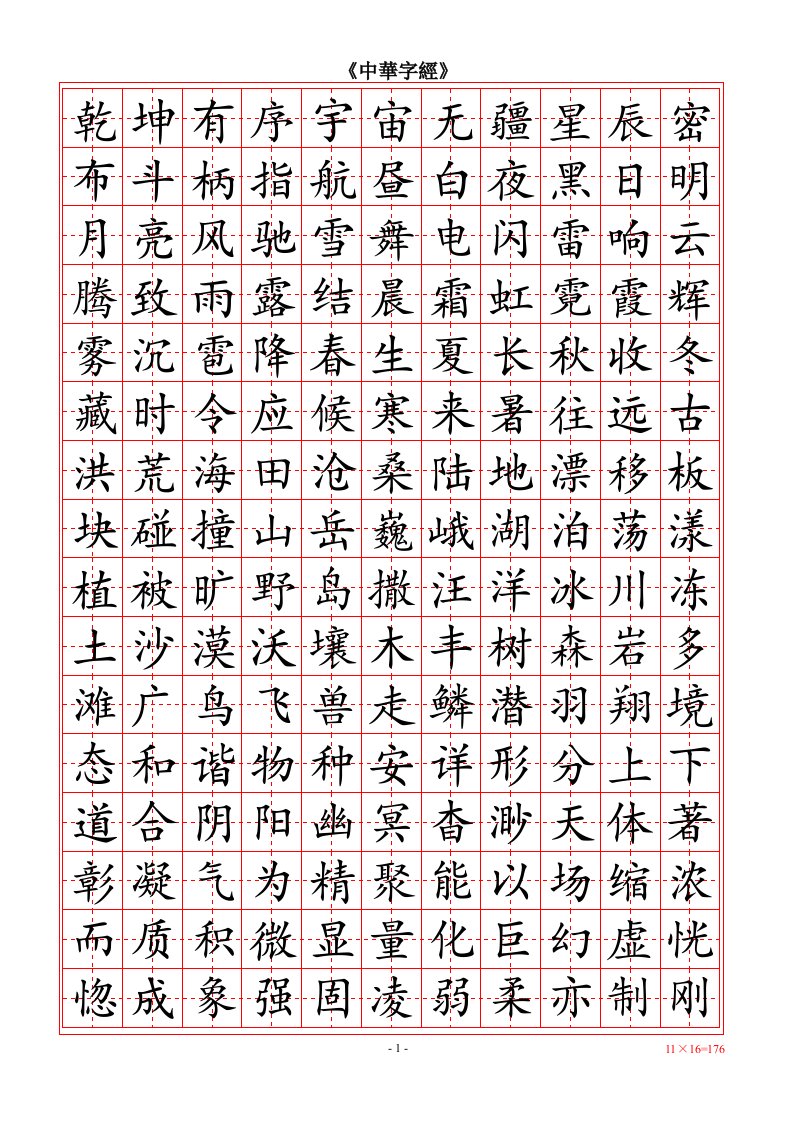 《中華字經》
乾坤有序宇宙无疆星辰密
布斗柄指航昼白夜黑日明
月亮风驰雪舞电闪雷响云
腾致雨露结晨霜虹霓霞辉
雾沉雹降春生夏长秋收冬
藏时令应候寒来暑往远古
洪荒海田沧桑陆地漂移板
块碰撞山岳巍峨湖泊荡漾
植被旷野岛撒汪洋冰川冻
土沙漠沃壤木丰树森岩多
滩广鸟飞兽走鳞潜羽翔境
态和谐物种安详形分上下
道合阴阳幽冥杳渺天体著
彰凝气为精聚能以场缩浓
而质积微显量化巨幻虚恍
惚成象强固凌弱柔亦制刚
- 1 -
11×16=176